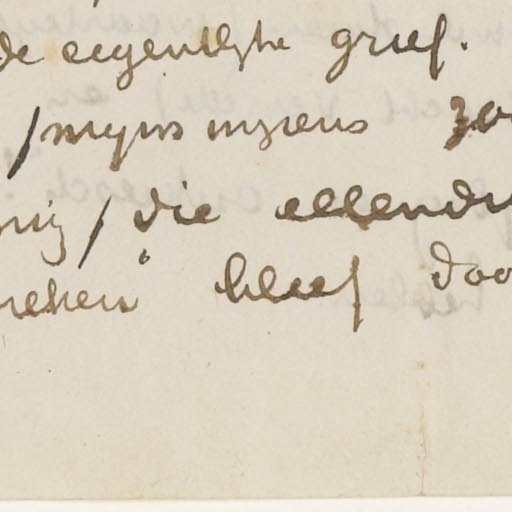 de eigenlijke grief.
/ mijns inziens zoo
/ die ellendi
reken" bleef doo